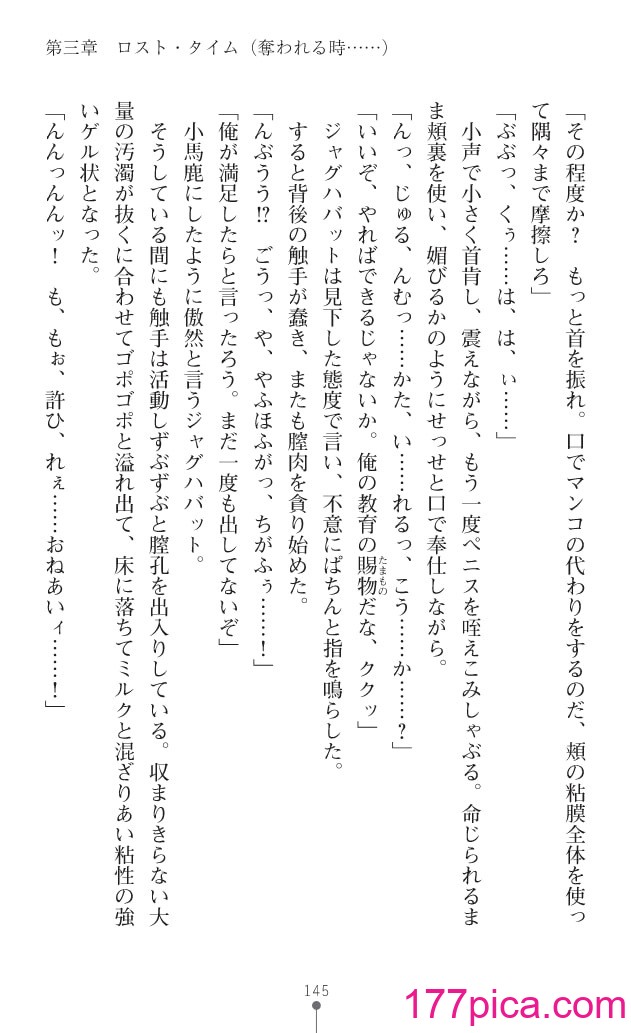 第三章　ロスト・タイム（奪われる時……）
「その程度か？　もっと首を振れ。口でマンコの代わりをするのだ、頬の粘膜全体を使っ
て隅々まで摩擦しろ」
「ぶぶっ、くぅ……は、は、ぃ……」
　小声で小さく首肯し、震えながら、もう一度ペニスを咥えこみしゃぶる。命じられるま
ま頬裏を使い、媚びるかのようにせっせと口で奉仕しながら。
「んっ、じゅる、んむっ……かた、い……れるっ、こう……か……？」
「いいぞ、やればできるじゃないか。俺の教育の賜物だな、ククッ」
たまもの
　ジャグハバットは見下した態度で言い、不意にぱちんと指を鳴らした。
　すると背後の触手が蠢き、またも膣肉を貪り始めた。
「んぶうう!?　ごうっ、や、やふほふがっ、ちがふぅ……！」
「俺が満足したらと言ったろう。まだ一度も出してないぞ」
　小馬鹿にしたように傲然と言うジャグハバット。
　そうしている間にも触手は活動しずぶずぶと膣孔を出入りしている。収まりきらない大
量の汚濁が抜くに合わせてゴポゴポと溢れ出て、床に落ちてミルクと混ざりあい粘性の強
いゲル状となった。
「んんっんんッ！　も、もぉ、許ひ、れぇ……おねあいィ……！」
145
177pica.com